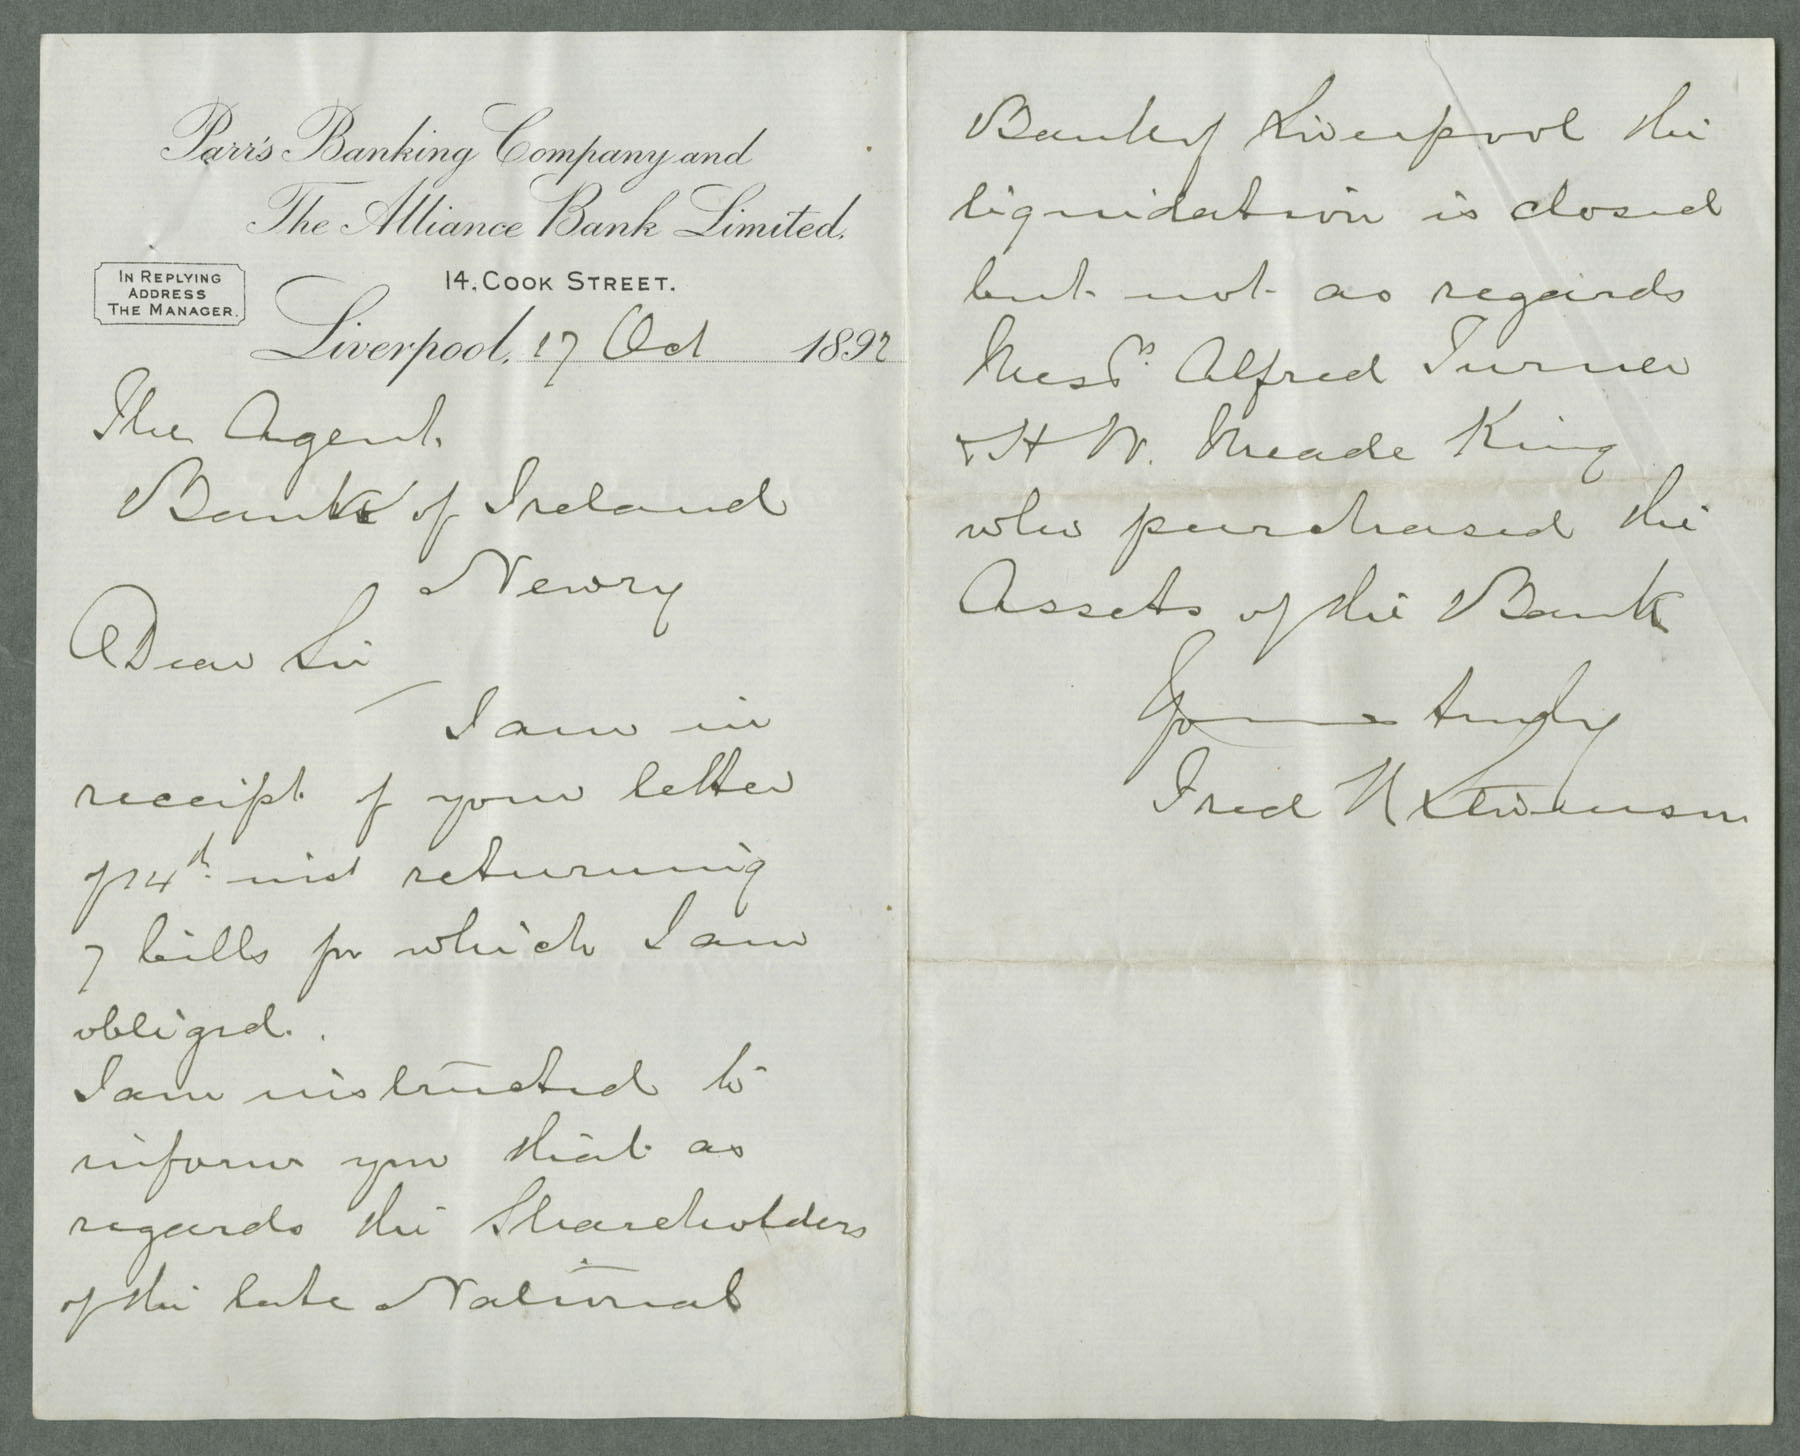 Parr's Banking Company and
The Alliance Bank Limited.
14, COOK STREET.
IN REPLYING
ADDRESS
THE MANAGER.
Liverpool, 17 Oct 1892
The Agent
Bank of Ireland
Newry
Dear Sir
I am in
receipt of your letter
of 14th inst returning
7 bills for which I am
obliged.
I am instructed to
inform you that as
regards the Shareholders
of the late National
Bank of Liverpool the
liquidation is closed
but not as regards
Messrs Alfred Turner
& H W. Meade King
who purchased the
Assets of the Bank
Yours truly
Fred